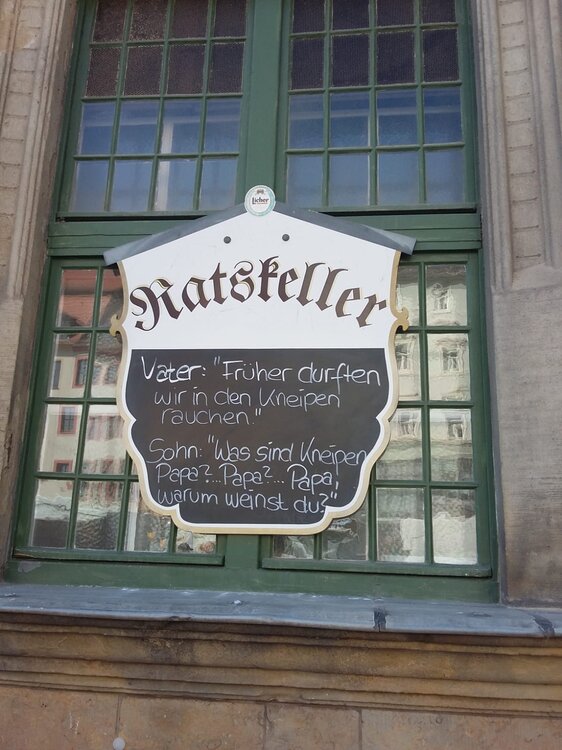 Licher
Ratskeller
Vater: "Früher durften
wir in den Kneipen
rauchen."
Sohn: "Was sind Kneipen
Papa?...Papa?... Papa,
warum weinst du?"